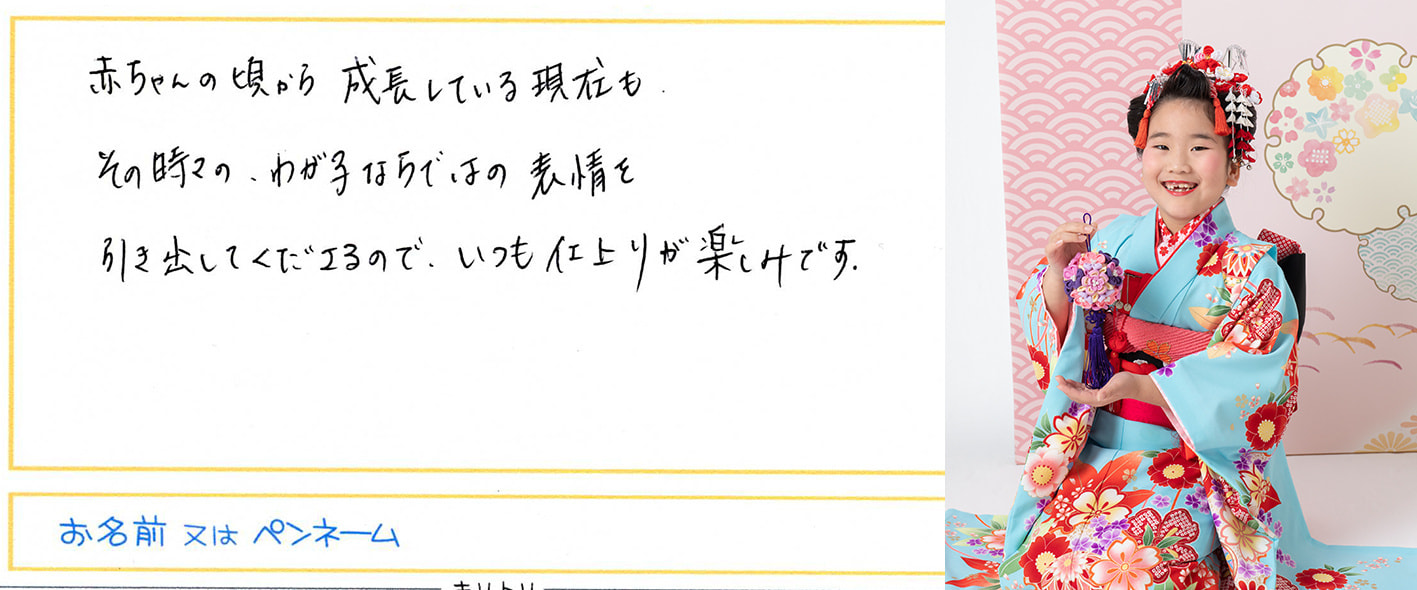 赤ちゃんの頃から 成長している現在も
その時々の、わが子ならではの 表情を
引き出してくださるので、いつも仕上りが楽しみです.
お名前 又は ペンネーム
キリトリ